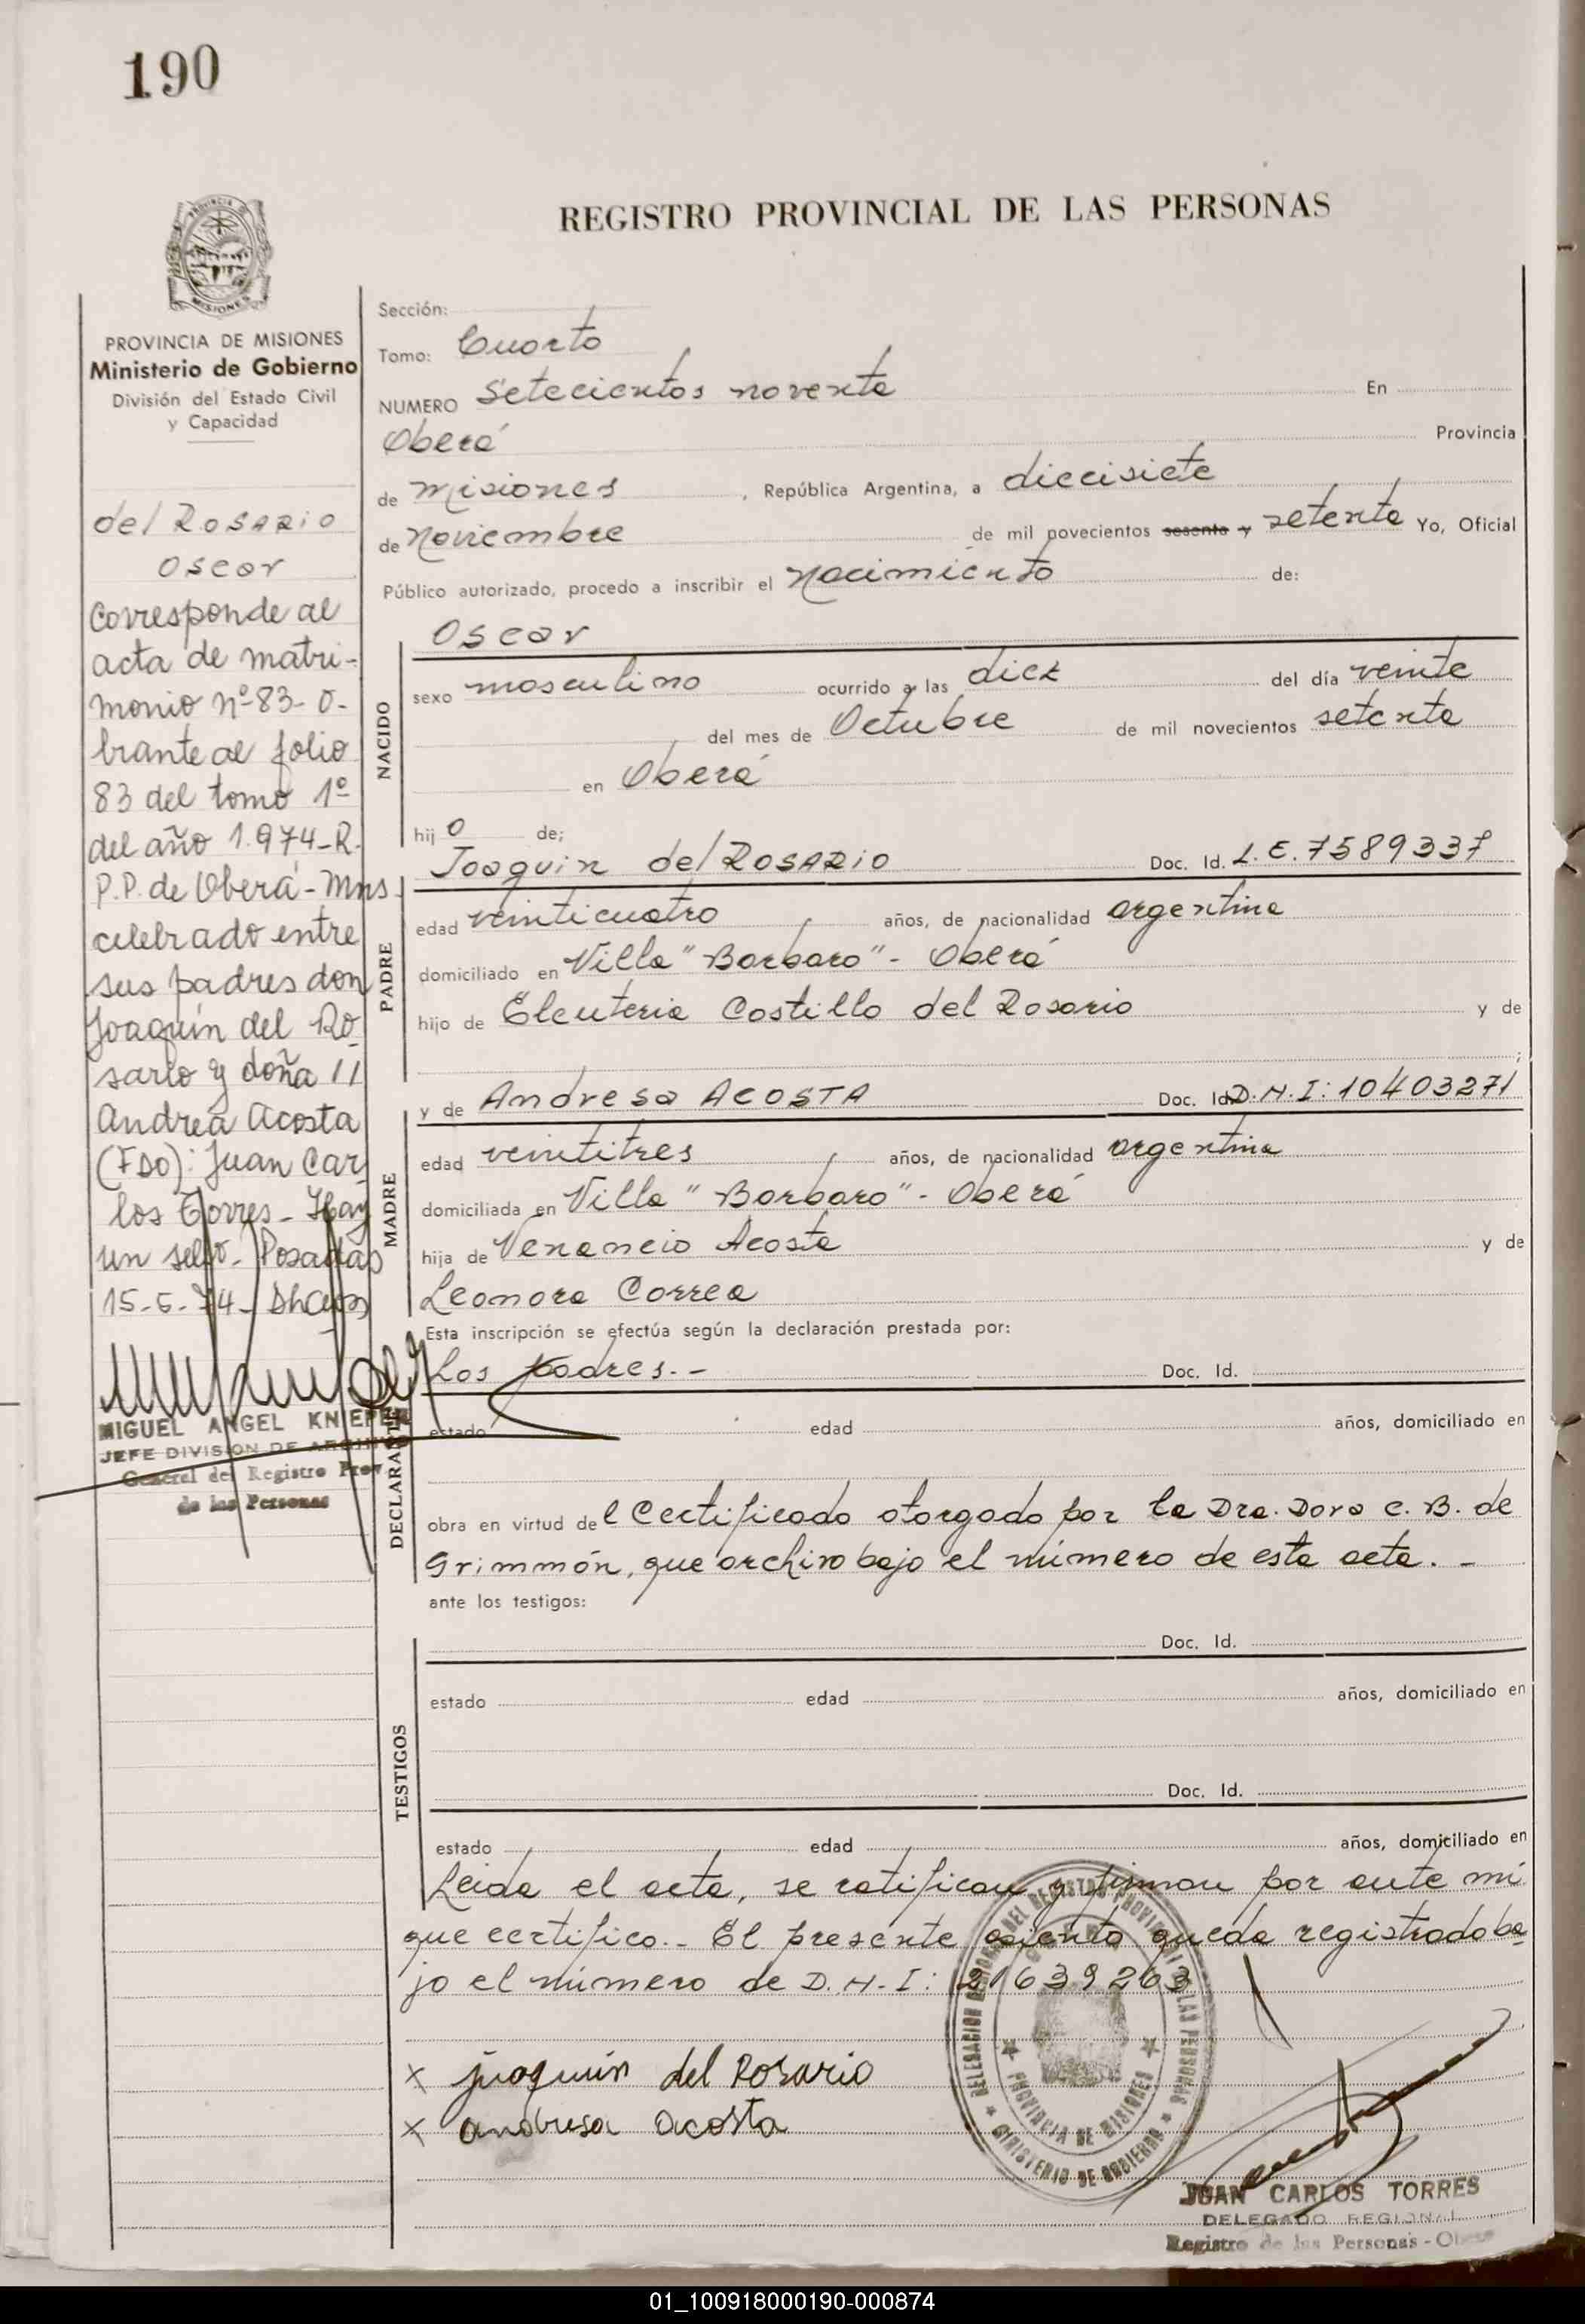 190
REGISTRO PROVINCIAL DE LAS PERSONAS
PROVINCIA DE MISIONES
Ministerio de Gobierno
División del Estado Civil
y Capacidad
del ROSARIO
Oscar
Corresponde al
acta de matri-
monio nº 83- o-
brante al folio
83 del tomo 1º
del año 1.974-R.
P.P. de Oberá-Mns
celebrado entre
sus padres don
Joaquín del Ro-
sario y doña //
Andrea Acosta
(FDO): Juan Car
los Torres- Hay
un sello. Posadas
MIGUEL ANGEL
JEFE DIVISION DE ARCHIVO
General del Registro Prov
de las Personas
Sección:
Tomo: Cuarto
NUMERO Setecientos noventa En
Oberá Provincia
de Misiones , República Argentina, a diecisiete
de Noviembre de mil novecientos sesenta y setenta Yo, Oficial
Público autorizado, procedo a inscribir el Nacimiento de:
NACIDO
Oscar
sexo masculino ocurrido a las diez del día veinte
del mes de Octubre de mil novecientos setenta
en Oberá
hij o de;
PADRE
Joaquin del ROSARIO Doc. Id. L.E. 7589337
edad veinticuatro años, de nacionalidad argentina
domiciliado en Villa "Barbaro"- Oberá
hijo de Eleuteria Castillo del Rosario y de
MADRE
y de Andresa ACOSTA Doc. Id. D.N.I: 10403271
edad veintitres años, de nacionalidad argentina
domiciliada en Villa "Barbaro"- Oberá
hija de Venancio Acosta y de
Leonora Correa
DECLARANTE
Esta inscripción se efectúa según la declaración prestada por:
Los padres.- Doc. Id.
estado edad años, domiciliado en
obra en virtud de l Certificado otorgado por la Dra. Dora C. B. de
Grimmón, que archivo bajo el número de esta acta. -
ante los testigos:
TESTIGOS
Doc. Id.
estado edad años, domiciliado en
Doc. Id.
estado edad años, domiciliado en
Leida el acta, se ratifican y firman por ante mi
que certifico.- El presente asiento queda registrado ba
jo el número de D.N.I: 21639263
x joaquin del Rosario
x andresa acosta
DELEGACION REGIONAL DEL REGISTRO PROVINCIAL DE LAS PERSONAS
PROVINCIA DE MISIONES
MINISTERIO DE GOBIERNO
JUAN CARLOS TORRES
DELEGADO REGIONAL
Registro de las Personas - Oberá
01_100918000190-000874